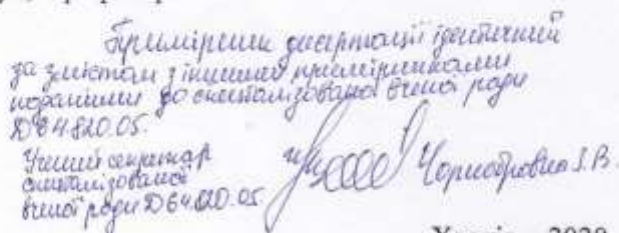 Примірник дисертації ідентичний
за змістом з іншими примірниками
поданими до спеціалізованої вченої ради
Д 64.820.05.
Учений секретар
спеціалізованої
вченої ради Д 64.820.05